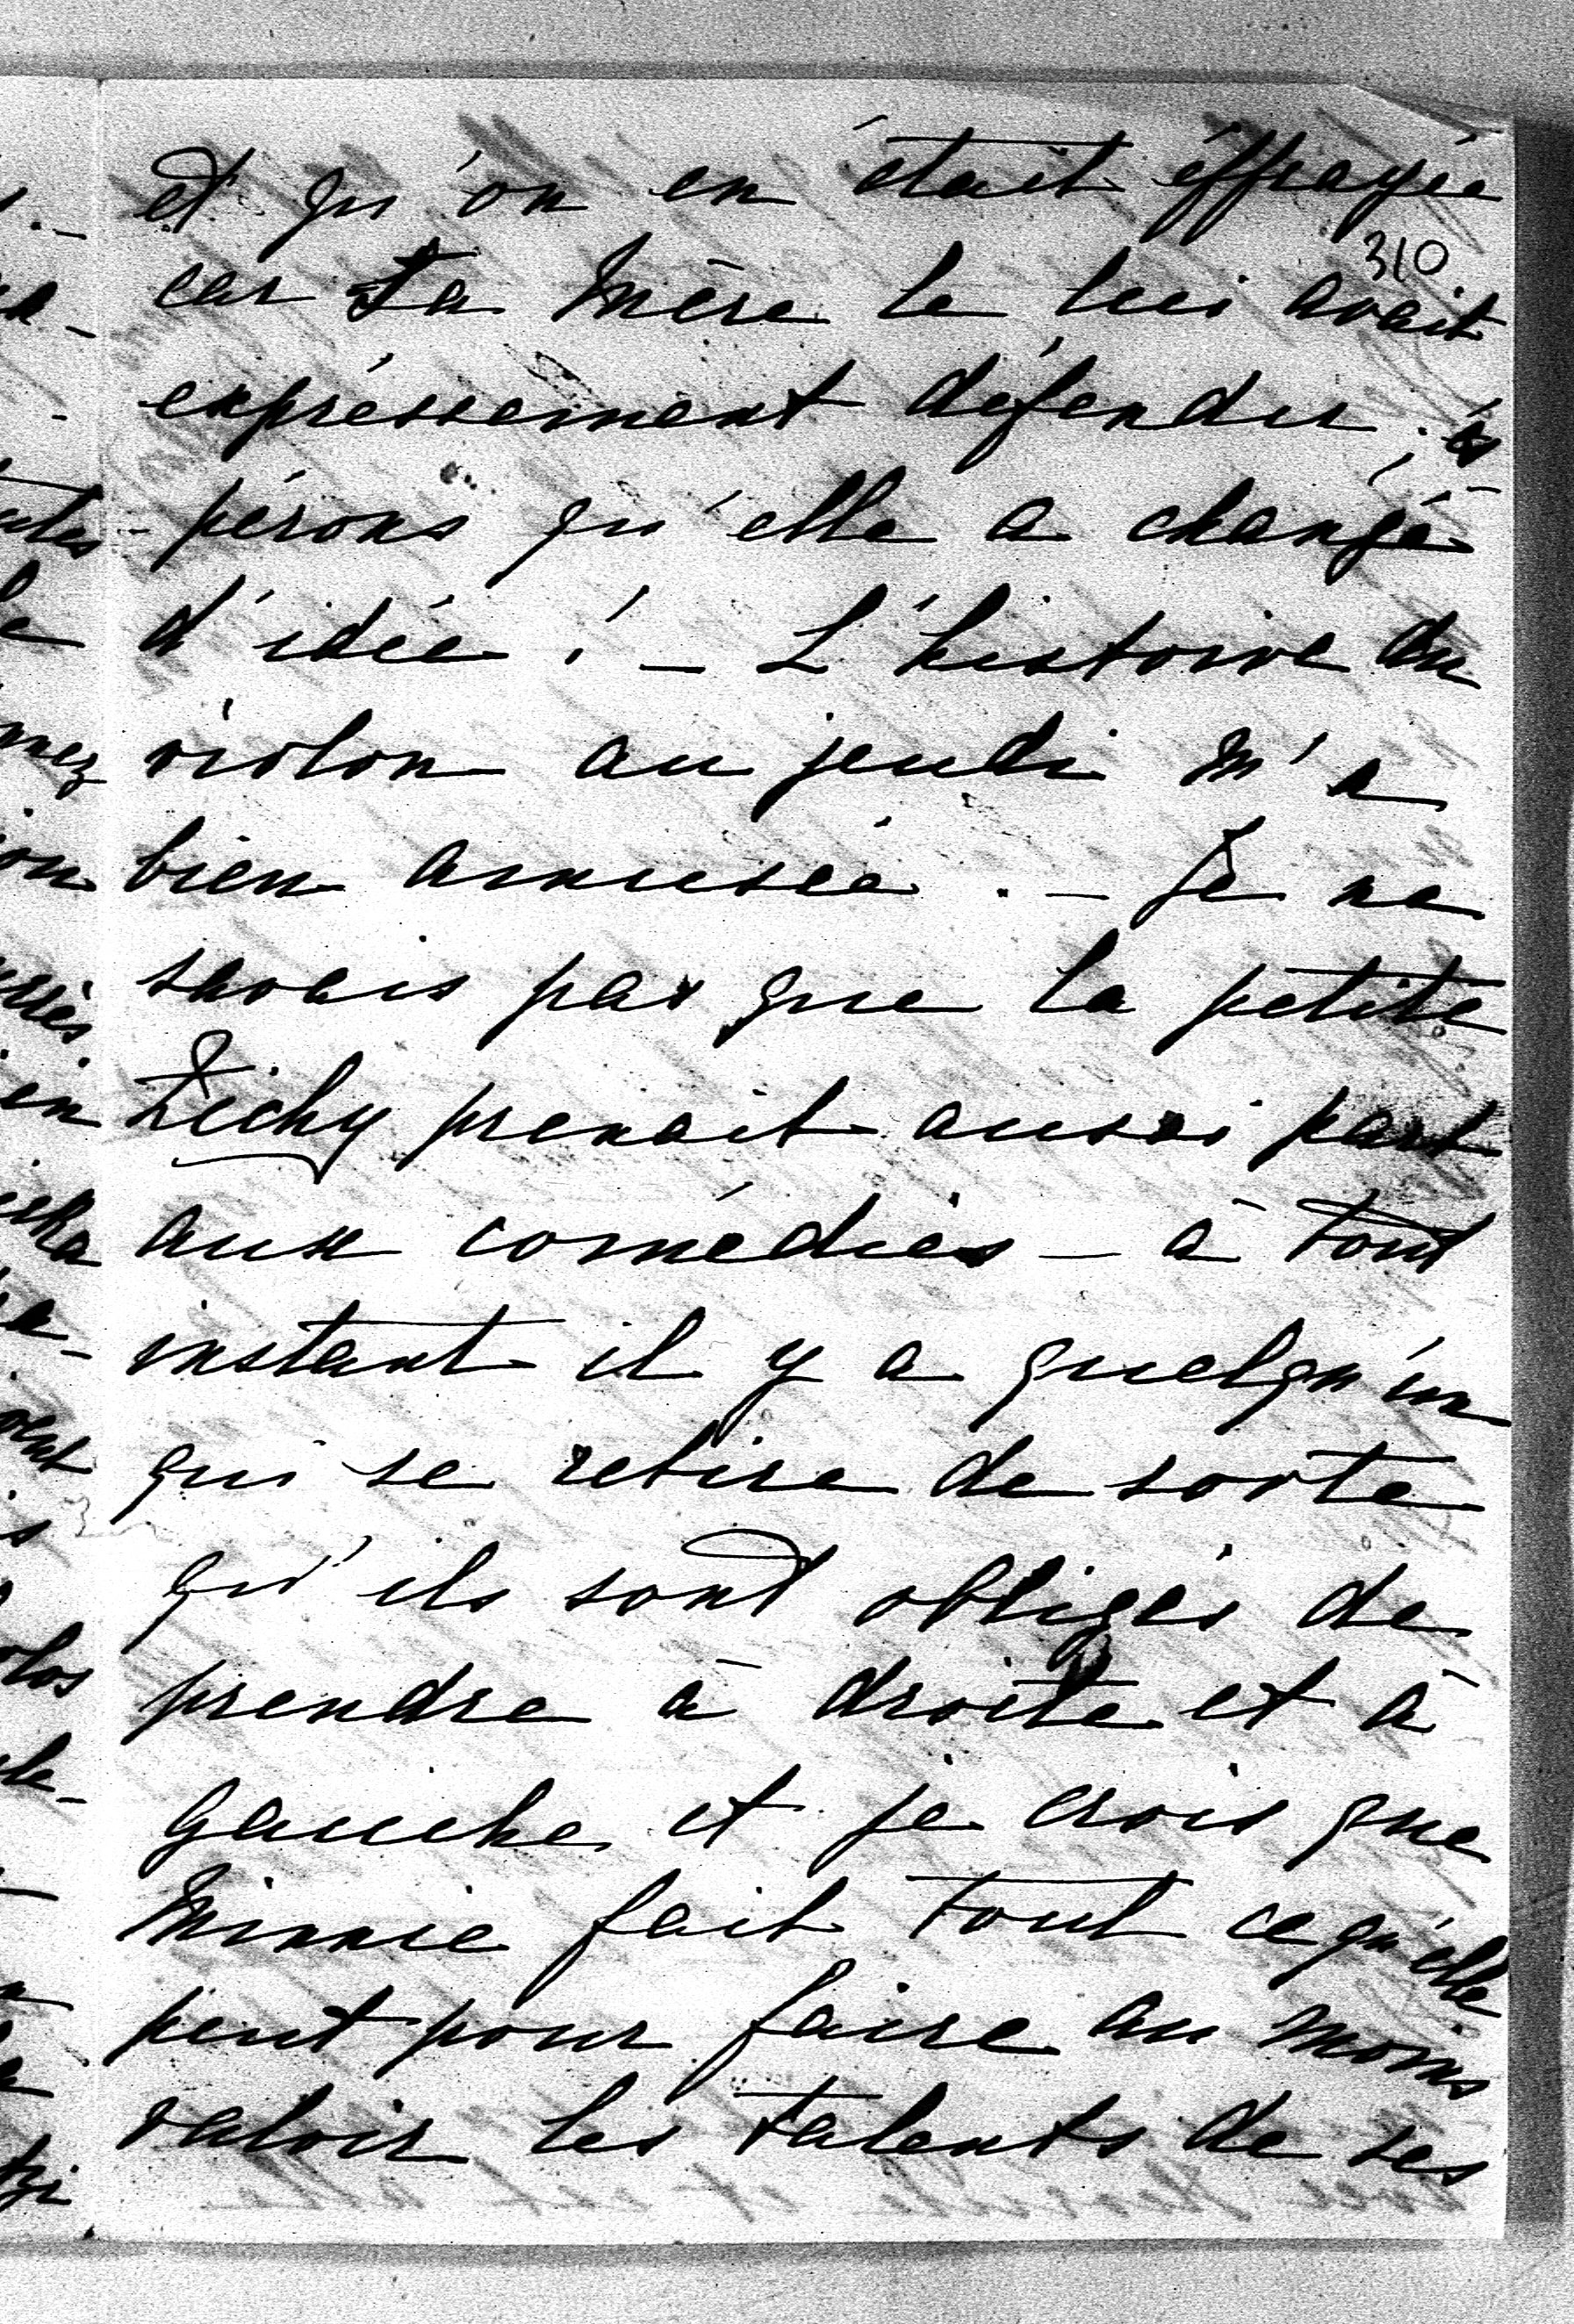 et qu'on en était éffrayée
310
car Ta Mère le lui avait
expréssement défendu. és
- pérons qu'elle a changé
d'idée! — L'histoire du
violon au jeudi m'a
bien amusée. — Je ne
savais pas que la petite
Zichy prenait aussi part
aux comédies — à tout
instant il y a quelqu'un
qui se retire de sorte
qu'ils sont obligés de
prendre à droite et à
gauche et je crois que
Minnie fait tout ce qu'elle
peut pour faire au moins
valoir les talents de ses